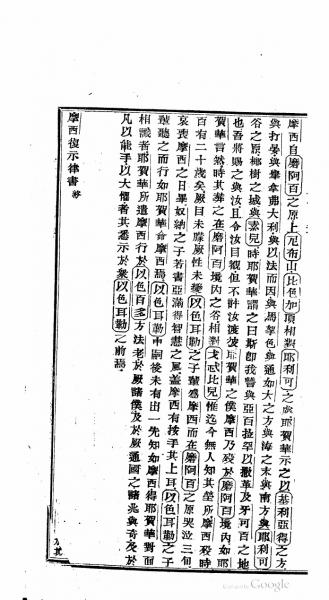 摩西自磨阿百之原上尼布山比色加頂相對耶利可之處耶賀華示之以基利亞得之方
與打晏與拿弗大利與以法而因與馬拿色與通如大之方與海之末與南方與耶利可
谷之原椰樹之城與素兒時耶賀華謂之曰斯即我誓與亞百拉罕以撒革及牙可百之地
也吾將賜之與汝且令汝目觀但不許汝渡彼耶賀華之僕摩西乃歿於磨阿百境內如耶
賀華言然時其葬之在磨阿百境內之谷相對戈忒比兒惟迄今無人知其塋所摩西歿時
百有二十歲矣厥目未矇厥性未變以色耳勒之子輩為摩西而在磨阿百之原哭泣三旬
哀喪摩西之日畢奴納之子若書亞滿得智慧之風蓋摩西有按手其上耳以色耳勒之子
遂聽之而行如耶賀華命摩西焉以色耳勒中嗣後未有出一先知如摩西得耶賀華對面
相識者耶賀華所遣摩西行於以色百多方法老於厥諸僕及於厥通國之諸兆與奇及於
凡以能手以大懼者其悉示於衆以色耳勒之前焉
摩西復示律書 終